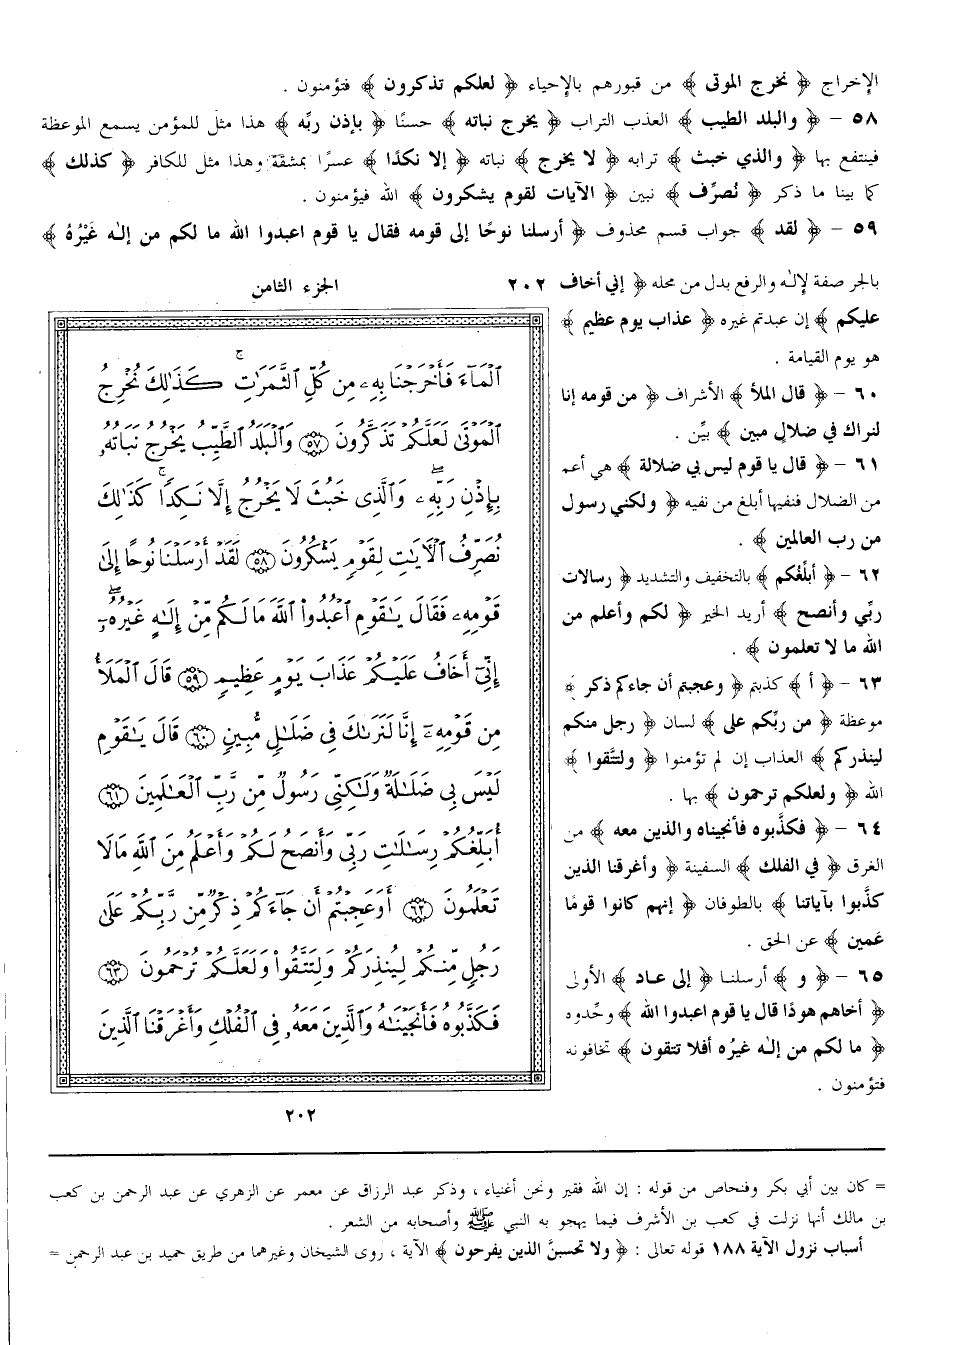 الإخراج ﴿ نخرج الموتى ﴾ من قبورهم بالإحياء ﴿ لعلكم تذكرون ﴾ فتؤمنون .
٥٨ - ﴿ والبلد الطيب ﴾ العذب التراب ﴿ يخرج نباته ﴾ حسنًا ﴿ بإذن ربِّه ﴾ هذا مثل للمؤمن يسمع الموعظة
فينتفع بها ﴿ والذي خبث ﴾ ترابه ﴿ لا يخرج ﴾ نباته ﴿ إلا نكدًا ﴾ عسرًا بمشقة وهذا مثل للكافر ﴿ كذلك ﴾
كما بينا ما ذكر ﴿ نُصرِّف ﴾ نبين ﴿ الآيات لقوم يشكرون ﴾ الله فيؤمنون .
٥٩ - ﴿ لقد ﴾ جواب قسم محذوف ﴿ أرسلنا نوحًا إلى قومه فقال يا قوم اعبدوا الله ما لكم من إلـٰه غَيْرُهُ ﴾
بالجر صفة لإلـٰه والرفع بدل من محله ﴿ إني أخاف
عليكم ﴾ إن عبدتم غيره ﴿ عذاب يوم عظيم ﴾
هو يوم القيامة .
٦٠ - ﴿ قال الملأ ﴾ الأشراف ﴿ من قومه إنا
لنراك في ضلال مبين ﴾ بيِّن .
٦١ - ﴿ قال يا قوم ليس بي ضلالة ﴾ هي أعم
من الضلال فنفيها أبلغ من نفيه ﴿ ولكني رسول
من رب العالمين ﴾ .
٦٢ - ﴿ أبلِّغُكم ﴾ بالتخفيف والتشديد ﴿ رسالات
ربِّي وأنصح ﴾ أريد الخير ﴿ لكم وأعلم من
الله ما لا تعلمون ﴾ .
٦٣ - ﴿ أ ﴾ كذبتم ﴿ وعجبتم أن جاءكم ذكر ﴾
موعظة ﴿ من ربِّكم على ﴾ لسان ﴿ رجل منكم
لينذركم ﴾ العذاب إن لم تؤمنوا ﴿ ولتتَّقوا ﴾
الله ﴿ ولعلكم ترحمون ﴾ بها .
٦٤ - ﴿ فكذَّبوه فأنجيناه والذين معه ﴾ من
الغرق ﴿ في الفلك ﴾ السفينة ﴿ وأغرقنا الذين
كذَّبوا بآياتنا ﴾ بالطوفان ﴿ إنهم كانوا قومًا
عَمين ﴾ عن الحق .
٦٥ - ﴿ و ﴾ أرسلنا ﴿ إلى عاد ﴾ الأولى
﴿ أخاهم هودًا قال يا قوم اعبدوا الله ﴾ وحِّدوه
﴿ ما لكم من إلـٰه غيرُه أفلا تتقون ﴾ تخافونه
فتؤمنون .
٢٠٢ الجزء الثامن
ٱلْمَآءَ فَأَخْرَجْنَا بِهِۦ مِن كُلِّ ٱلثَّمَرَٰتِۚ كَذَٰلِكَ نُخْرِجُ
ٱلْمَوْتَىٰ لَعَلَّكُمْ تَذَكَّرُونَ ٥٧ وَٱلْبَلَدُ ٱلطَّيِّبُ يَخْرُجُ نَبَاتُهُۥ
بِإِذْنِ رَبِّهِۦۖ وَٱلَّذِى خَبُثَ لَا يَخْرُجُ إِلَّا نَكِدًاۚ كَذَٰلِكَ
نُصَرِّفُ ٱلْـَٔايَٰتِ لِقَوْمٍ يَشْكُرُونَ ٥٨ لَقَدْ أَرْسَلْنَا نُوحًا إِلَىٰ
قَوْمِهِۦ فَقَالَ يَٰقَوْمِ ٱعْبُدُوا۟ ٱللَّهَ مَا لَكُم مِّنْ إِلَٰهٍ غَيْرُهُۥٓ
إِنِّىٓ أَخَافُ عَلَيْكُمْ عَذَابَ يَوْمٍ عَظِيمٍ ٥٩ قَالَ ٱلْمَلَأُ
مِن قَوْمِهِۦٓ إِنَّا لَنَرَىٰكَ فِى ضَلَٰلٍ مُّبِينٍ ٦٠ قَالَ يَٰقَوْمِ
لَيْسَ بِى ضَلَٰلَةٌ وَلَٰكِنِّى رَسُولٌ مِّن رَّبِّ ٱلْعَٰلَمِينَ ٦١
أُبَلِّغُكُمْ رِسَٰلَٰتِ رَبِّى وَأَنصَحُ لَكُمْ وَأَعْلَمُ مِنَ ٱللَّهِ مَا لَا
تَعْلَمُونَ ٦٢ أَوَعَجِبْتُمْ أَن جَآءَكُمْ ذِكْرٌ مِّن رَّبِّكُمْ عَلَىٰ
رَجُلٍ مِّنكُمْ لِيُنذِرَكُمْ وَلِتَتَّقُوا۟ وَلَعَلَّكُمْ تُرْحَمُونَ ٦٣
فَكَذَّبُوهُ فَأَنجَيْنَٰهُ وَٱلَّذِينَ مَعَهُۥ فِى ٱلْفُلْكِ وَأَغْرَقْنَا ٱلَّذِينَ
٢٠٢
= كان بين أبي بكر وفنحاص من قوله : إن الله فقير ونحن أغنياء ، وذكر عبد الرزاق عن معمر عن الزهري عن عبد الرحمن بن كعب
بن مالك أنها نزلت في كعب بن الأشرف فيما يهجو به النبي ﷺ وأصحابه من الشعر .
أسباب نزول الآية ١٨٨ قوله تعالى : ﴿ ولا تحسبنَّ الذين يفرحون ﴾ الآية ، روى الشيخان وغيرهما من طريق حميد بن عبد الرحمن =